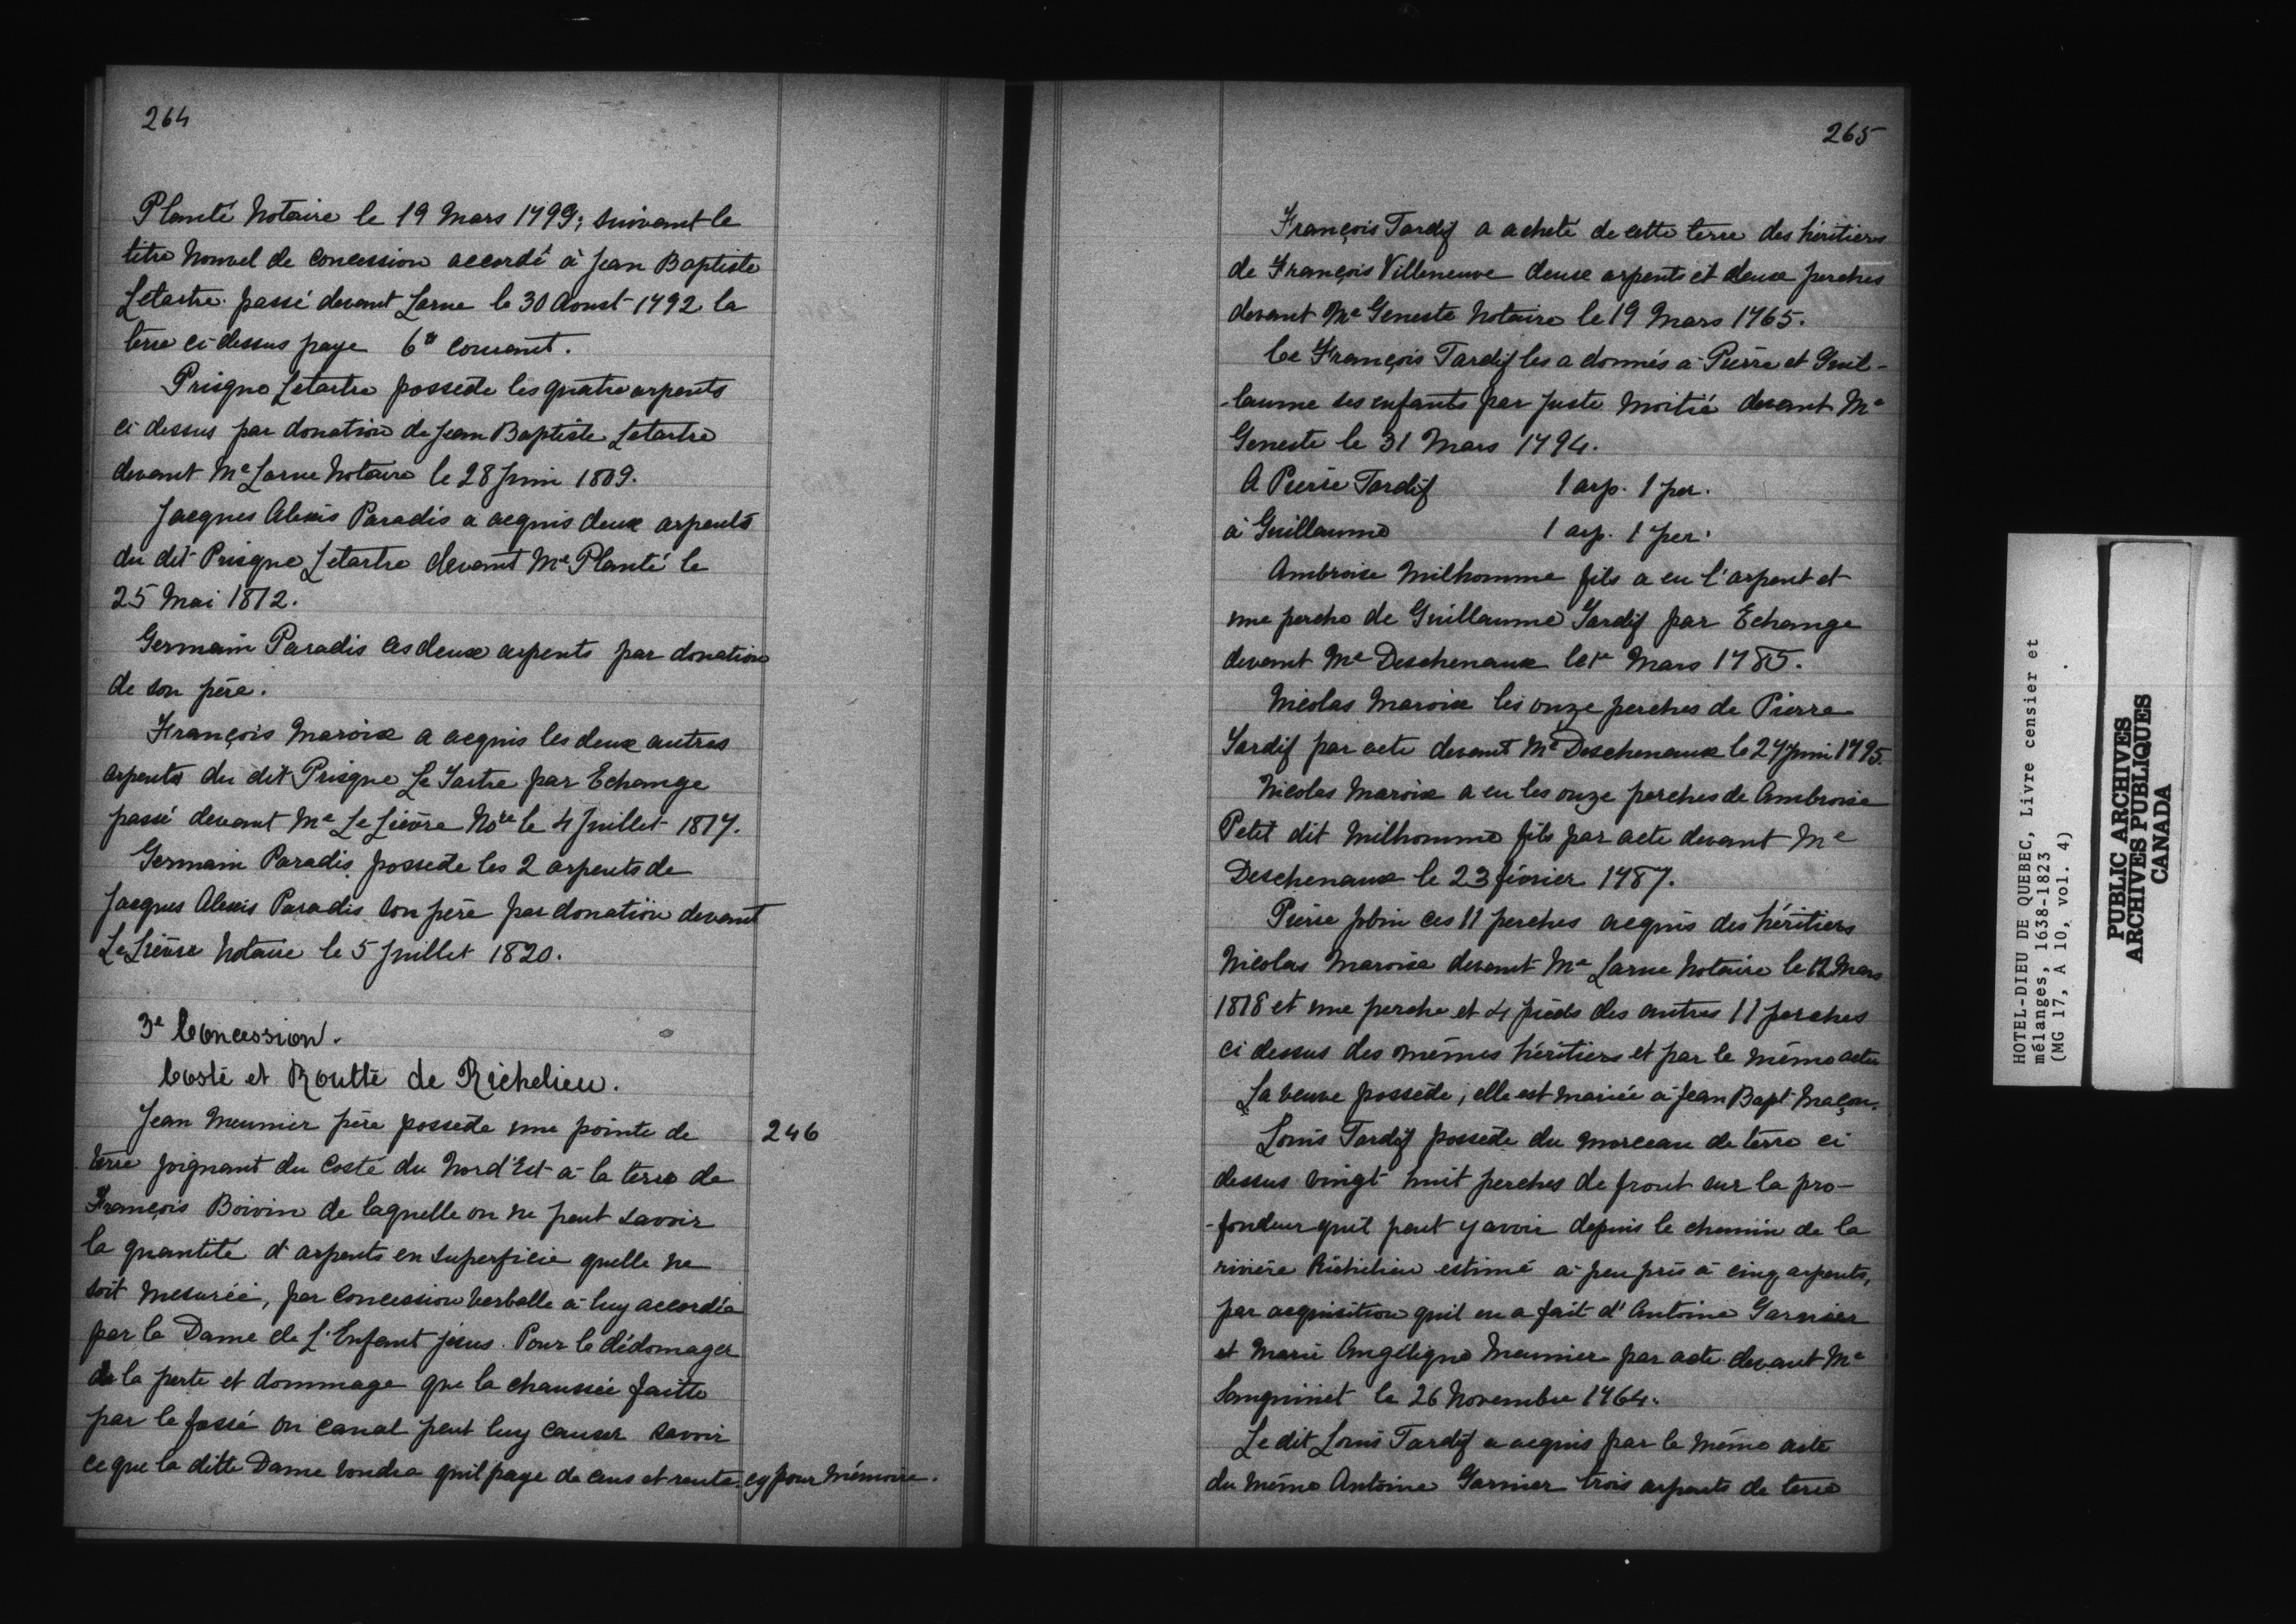 264
Planté Notaire le 19 Mars 1799; suivant le
titre Nouvel de Concession accordé à Jean Baptiste
Letartre passé devant Larue le 30 Aoust 1792 la
terre ci dessus paye 6# courant.
Prisque Letartre possede les quatre arpents
ci dessus par donation de Jean Baptiste Letartre
devant Me Larue Notaire le 28 Juin 1809.
Jacques Alexis Paradis a acquis deux arpents
du dit Prisque Letartre devant Me Planté le
25 Mai 1812.
Germain Paradis ces deux arpents par donation
de son père.
François Maroix a acquis les deux autres
arpents du dit Prisque Le Tartre par Echange
passé devant Me Le Lièvre Nore le 4 Juillet 1817.
Germain Paradis possede les 2 arpents de
Jacques Alexis Paradis son père par donation devant
Le Lièvre Notaire le 5 Juillet 1820.
3e Concession.
Costé et Routte de Richelieu.
Jean Meunier père possede une pointe de 246
terre joignant du costé du Nord'Est à la terre de
François Boivin de laquelle on ne peut savoir
la quantité d'arpents en superficie quelle ne
soit mesurée, par Concession verballe à luy accordée
par la Dame de L'Enfant jesus. Pour le dédomager
de la perte et dommage que la chaussée faitte
par le fossé ou canal peut luy causer savoir
ce que la ditte Dame voudra quil paye de cens et rente cy pour Mémoire.
265
François Tardif a acheté de cette terre des héritiers
de François Villeneuve deux arpents et deux perches
devant Me Geneste Notaire le 19 Mars 1765.
Ce François Tardif les a donnés à Pierre et Guil-
-laume ses enfants par juste moitié devant Me
Geneste le 31 Mars 1794.
A Pierre Tardif 1 arp. 1 per.
à Guillaume 1 arp. 1 per.
Ambroise Milhomme fils a eu l'arpent et
une perche de Guillaume Tardif par Echange
devant Me Deschenaux le 1er Mars 1785.
Nicolas Maroix les onze perches de Pierre
Tardif par acte devant Me Deschenaux le 27 Juin 1795.
Nicolas Maroix a eu les onze perches de Ambroise
Petit dit Milhomme fils par acte devant Me
Deschenaux le 23 février 1787.
Pierre Jobin ces 11 perches acquis des héritiers
Nicolas Maroix devant Me Larue Notaire le 12 Mars
1818 et une perche et 4 pieds des autres 11 perches
ci dessus des mêmes héritiers et par le même acte
La veuve possede, elle est mariée à Jean Bapt Maçon.
Louis Tardif possede du morceau de terre ci
dessus vingt huit perches de front sur la pro-
-fondeur quil peut y avoir depuis le chemin de la
rivière Richelieu estimé à peu près à cinq arpents,
par acquisition quil en a fait d'Antoine Garnier
et Marie Angélique Meunier par acte devant Me
Sanguinet le 26 Novembre 1764.
Le dit Louis Tardif a acquis par le même acte
du même Antoine Garnier trois arpents de terre
HOTEL-DIEU DE QUEBEC, Livre censier et
mélanges, 1638-1823
(MG 17, A 10, vol. 4)
PUBLIC ARCHIVES
ARCHIVES PUBLIQUES
CANADA